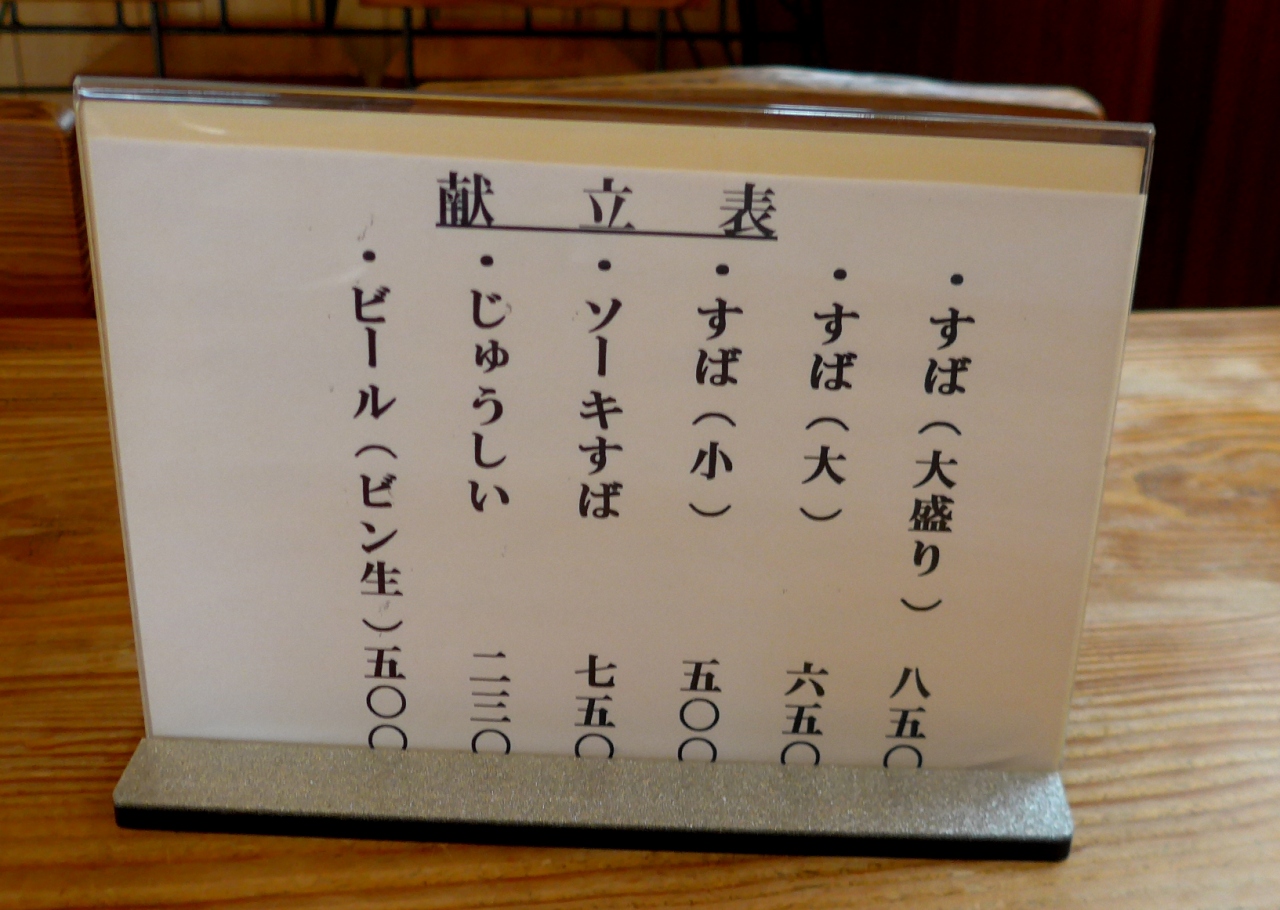 献立表
・すば（大盛り）　八五〇
・すば（大）　六五〇
・すば（小）　五〇〇
・ソーキすば　七五〇
・じゅうしい　二三〇
・ビール（ビン生）五〇〇